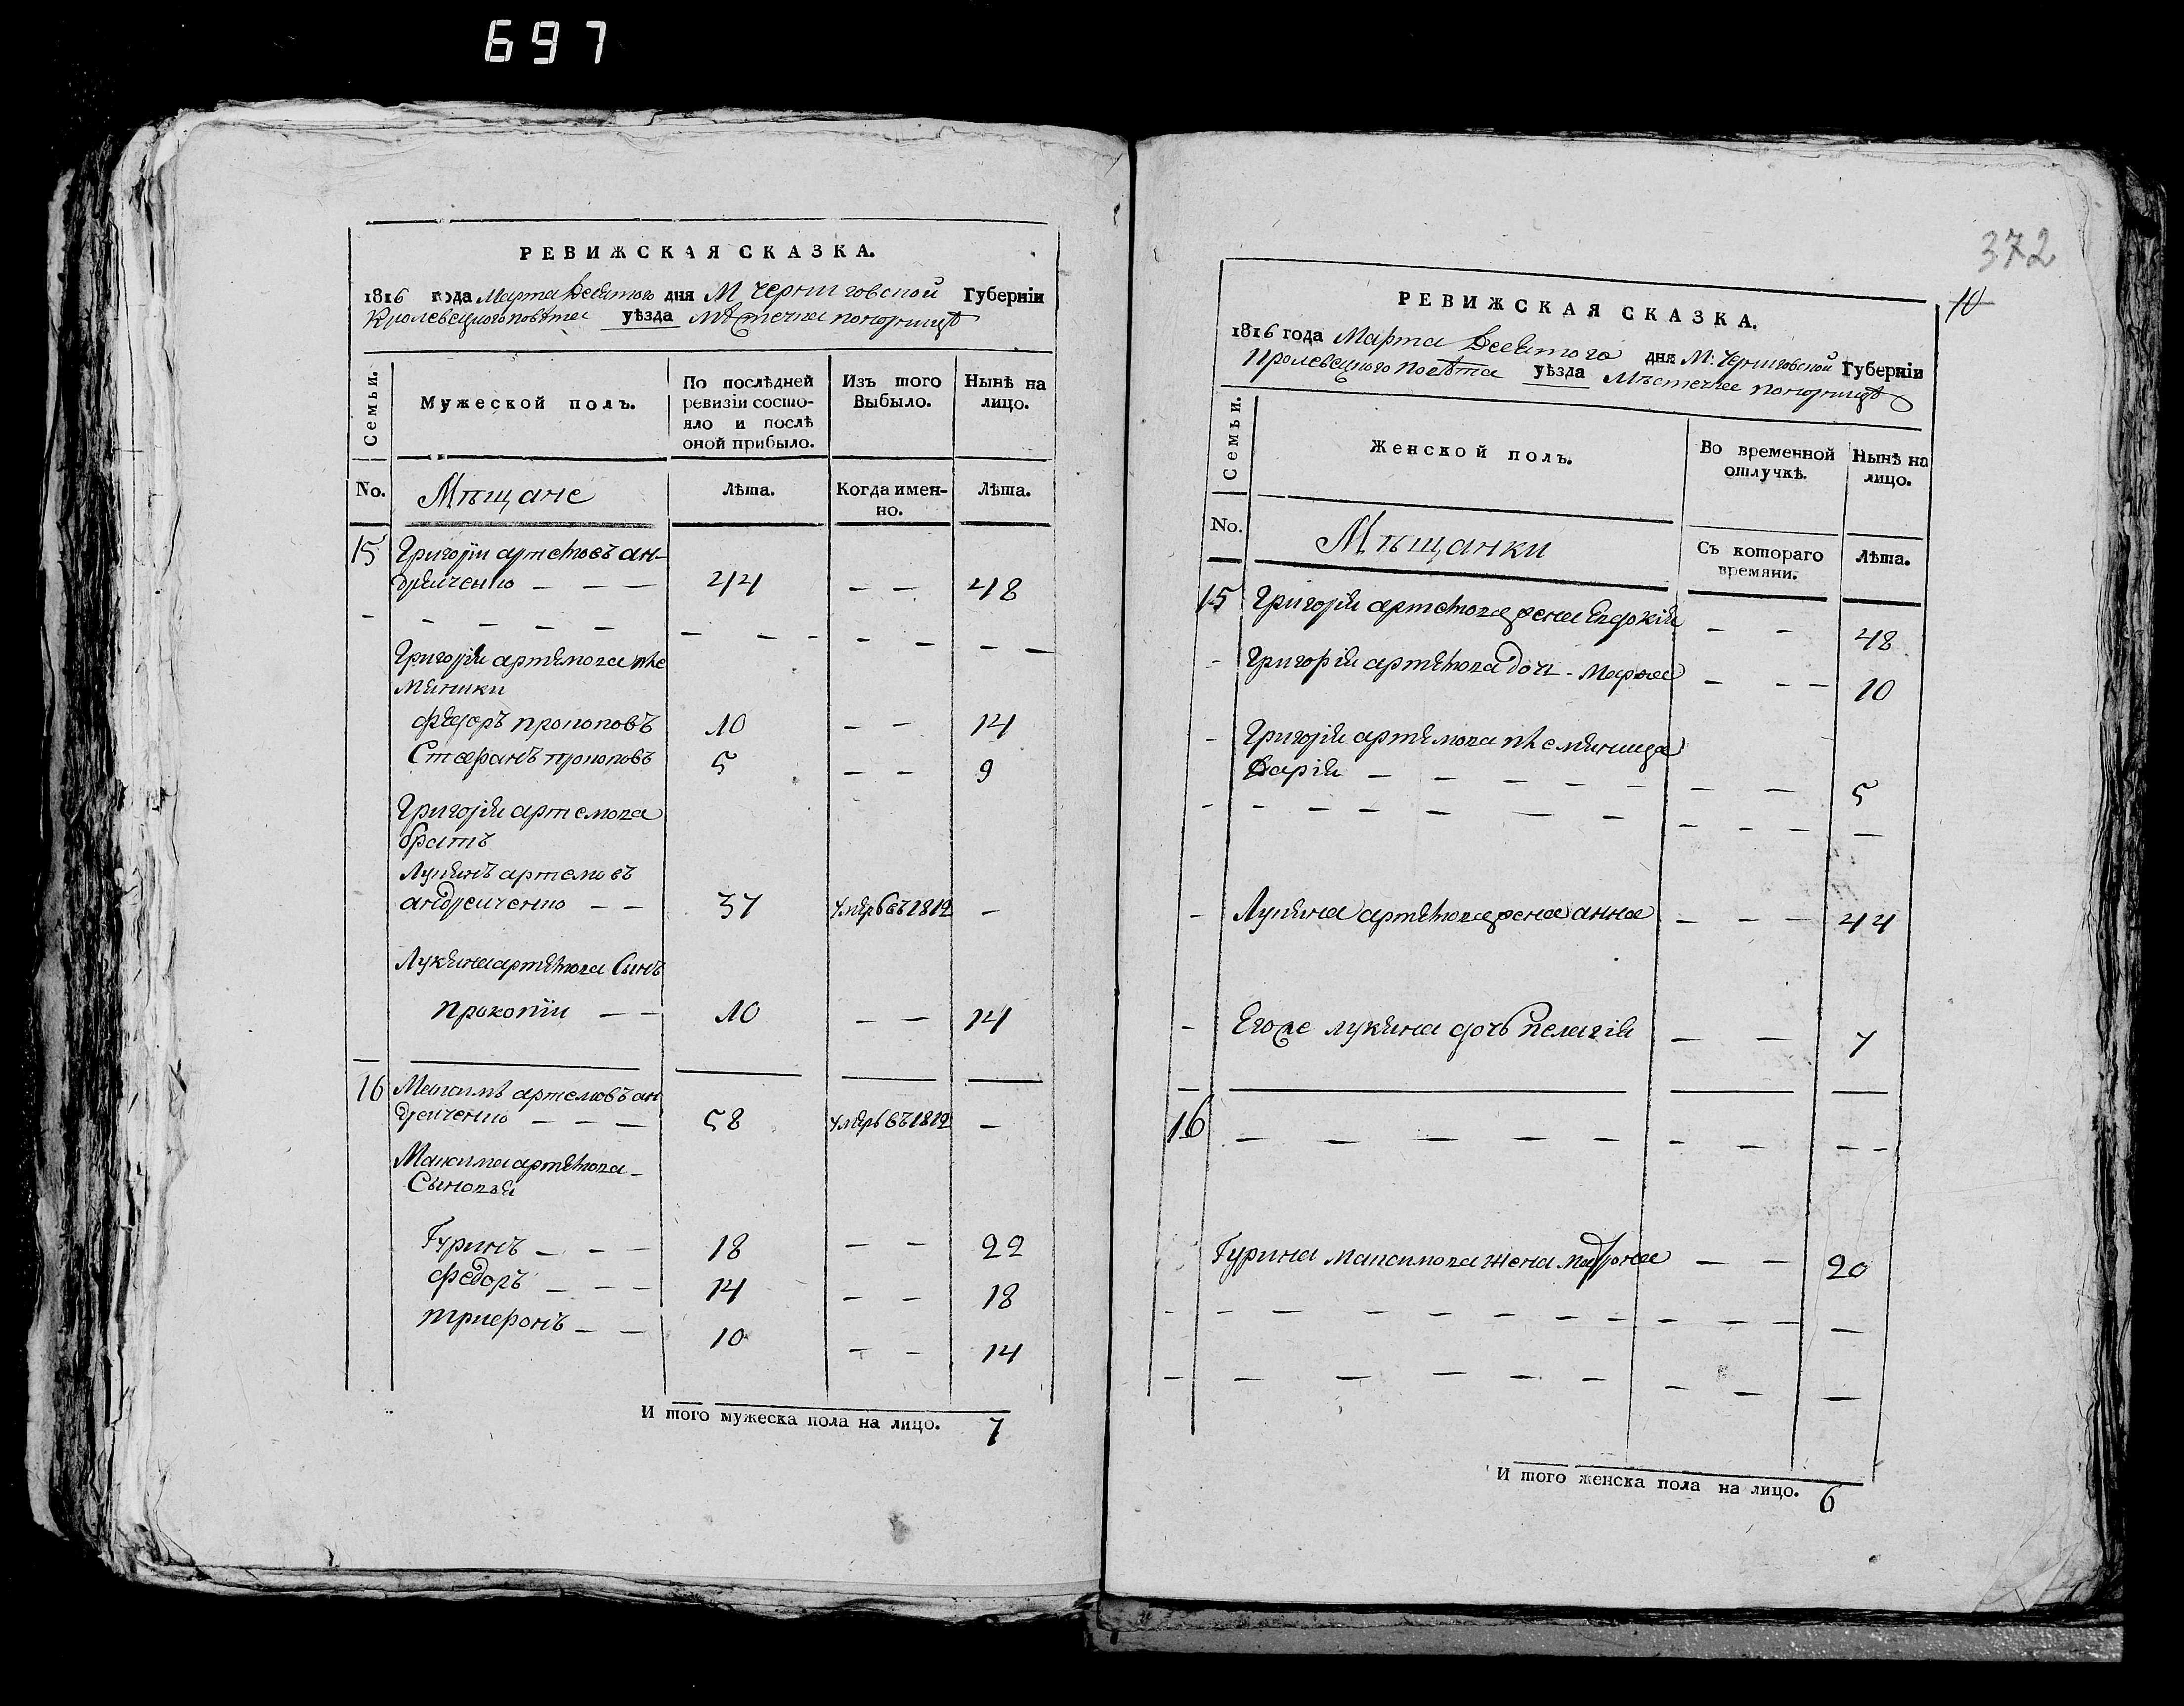 697
РЕВИЖСКАЯ СКАЗКА.
1816 года Марта Девятого дня М Черниговской Губерніи
Кролевецкого повѣта уѣзда Мѣстечка Понорницѣ
Семьи.
Мужеской полъ.
По послѣдней ревизіи состояло и послѣ оной прибыло.
Изъ того Выбыло.
Нынѣ на лицо.
No.
Мѣщане
Лѣта.
Когда именно.
Лѣта.
15 Григорій артемовъ ан-
дрейченко — — — 44 — — 48
Григорія артемова пле
мяники
федоръ прокоповъ 10 — — 14
Стефанъ прокоповъ 5 — — 9
Григорія артемова
братъ
Лукянъ артемовъ
андрейченко — — 37 умеръ въ 1812 —
Лукяна артемова Сынъ
прокопій — — 10 — — 14
16 Максимъ артемовъ ан
дрейченко — — — 58 умеръ въ 1812 —
Максима артемова
Сыновья
Гуринъ — — — 18 — — 22
федоръ — — — 14 — — 18
трифонъ — — 10 — — 14
И того мужеска пола на лицо. 7
372
10
РЕВИЖСКАЯ СКАЗКА.
1816 года Марта Девятого дня М: Черниговской Губерніи
Кролевецкого повѣта уѣзда Мѣстечка Понорницѣ
Семьи.
Женской полъ.
Во временной отлучкѣ.
Нынѣ на лицо.
No.
Мѣщанки
Съ котораго времяни.
Лѣта.
15 Григорія артемова жена Евдокія — — 48
Григорія артемова дочь - Марфа — — — 10
Григорія артемова племяница
Дарія — — — — — — — 5
Лукяна артемова жена анна — — — 44
Его же лукяна дочь пелагія — — 7
16 — — — — — — — — —
Гурина Максимова жена Мотрона — — 20
И того женска пола на лицо. 6